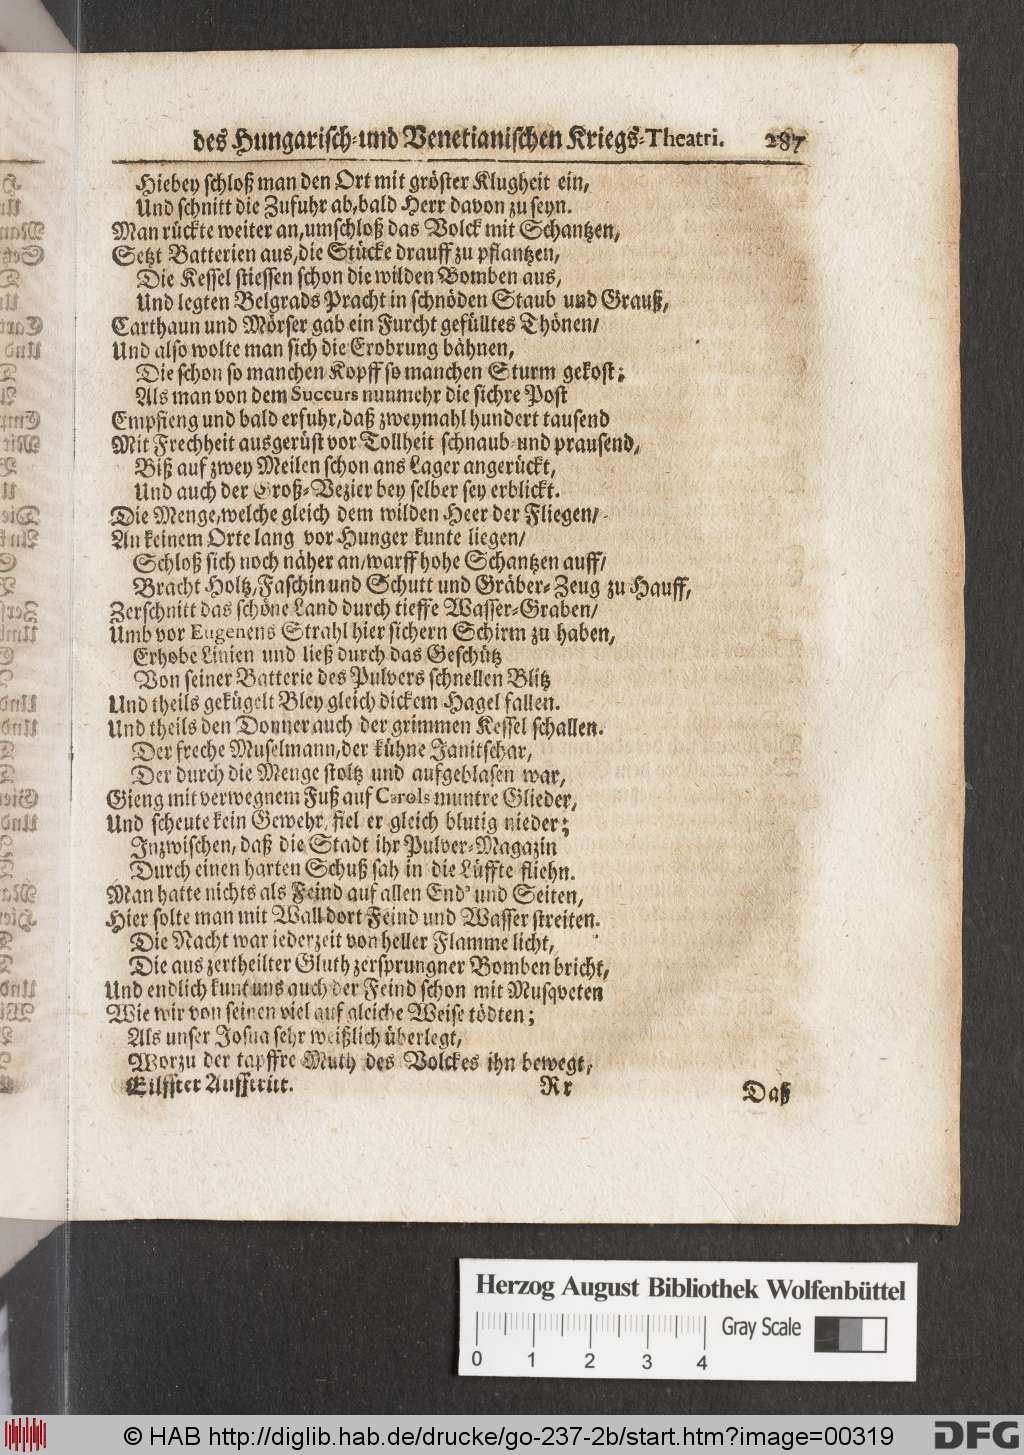 des Hungarisch-und Venetianischen Kriegs-Theatri. 287
Hiebey schloß man den Ort mit gröster Klugheit ein,
Und schnitt die Zufuhr ab, bald Herr davon zu seyn.
Man rückte weiter an, umschloß das Volck mit Schantzen,
Setzt Batterien aus, die Stücke drauff zu pflantzen,
Die Kessel stiessen schon die wilden Bomben aus,
Und legten Belgrads Pracht in schnöden Staub und Grauß,
Carthaun und Mörser gab ein Furcht gefülltes Thönen/
Und also wolte man sich die Erobrung bähnen,
Die schon so manchen Kopff so manchen Sturm gekost;
Als man von dem Succurs nunmehr die sichre Post
Empfieng und bald erfuhr, daß zweymahl hundert tausend
Mit Frechheit ausgerüst vor Tollheit schnaub-und prausend,
Biß auf zwey Meilen schon ans Lager angerückt,
Und auch der Groß-Vezier bey selber sey erblickt.
Die Menge, welche gleich dem wilden Heer der Fliegen/
An keinem Orte lang vor Hunger kunte liegen/
Schloß sich noch näher an/warff hohe Schantzen auff/
Bracht Holtz, Faschin und Schutt und Gräber-Zeug zu Hauff,
Zerschnitt das schöne Land durch tieffe Wasser-Graben/
Umb vor Eugenens Strahl hier sichern Schirm zu haben,
Erhobe Linien und ließ durch das Geschütz
Von seiner Batterie des Pulvers schnellen Blitz
Und theils gekügelt Bley gleich dickem Hagel fallen.
Und theils den Donner auch der grimmen Kessel schallen.
Der freche Muselmann, der kühne Janitschar,
Der durch die Menge stoltz und aufgeblasen war,
Gieng mit verwegnem Fuß auf Carols muntre Glieder,
Und scheute kein Gewehr, fiel er gleich blutig nieder;
Inzwischen, daß die Stadt ihr Pulver-Magazin
Durch einen harten Schuß sah in die Lüffte fliehn.
Man hatte nichts als Feind auf allen End' und Seiten,
Hier solte man mit Wall dort Feind und Wasser streiten.
Die Nacht war iederzeit von heller Flamme licht,
Die aus zertheilter Gluth zersprungner Bomben bricht,
Und endlich kunt uns auch der Feind schon mit Musqveten
Wie wir von seinen viel auf gleiche Weise tödten;
Als unser Josua sehr weißlich überlegt,
Worzu der tapffre Muth des Volckes ihn bewegt,
Eilffter Aufftritt. Rr Daß
Herzog August Bibliothek Wolfenbüttel
Gray Scale
0 1 2 3 4
© HAB http://diglib.hab.de/drucke/go-237-2b/start.htm?image=00319
DFG